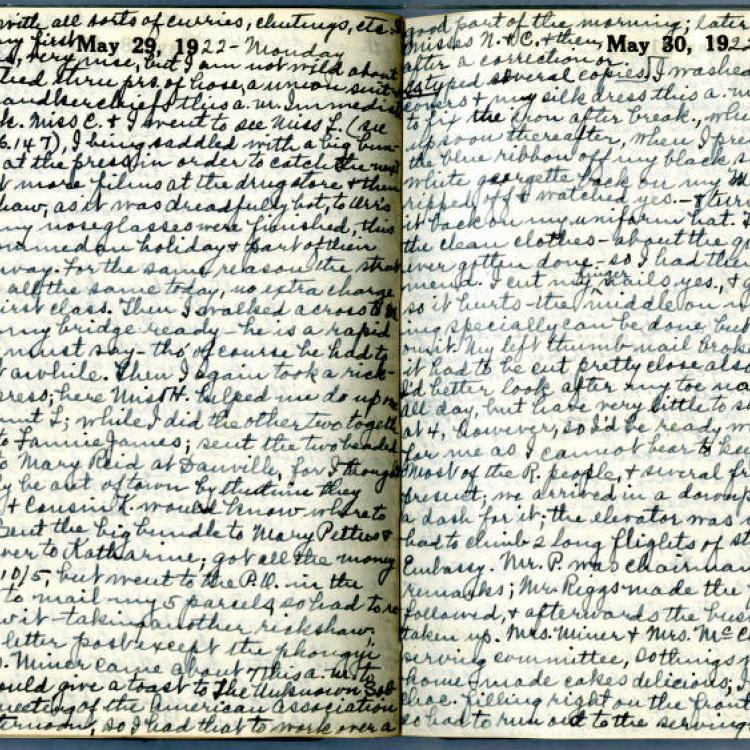 with all sorts of curries, chutings, etc.
my first
May 29, 1922 - Monday
very nice, but I am not wild about
thru prs. of hose, a union suit
handkerchiefs this a.m. Immediat
k. Miss C. & I went to see Miss L. (see
6.147), I being saddled with a big bun-
at the press in order to catch the next
t more films at the drug store & then
haw, as it was dreadfully hot, to
my noseglasses were finished, this
named on holiday & part of their
way. For the same reason the
all the same today, no extra charge
irst class. Then I walked across to
my bridge ready - he is a rapid
must say - tho' of course he had to
t awhile. Then I again took a rick-
press; here Miss H. helped me do up
unt L; while I did the other two togeth
to Fannie James; sent the two beaded
to Mary Reid at Danville, for I though
y be out of town by the time they
& Cousin K. would know where to
Sent the big bundle to Mary Pettus &
ver to Katharine; got all the money
10/5, but went to the P.O. in the
to mail my 5 parcels, so had to re
w it - taking another rickshaw.
letter post except the phonqui
Miner came about 7 this a.m. to
ould give a toast to The Unknown Sol
meeting of the American Association
ternoon, so I had that to work over a
good part of the morning; later
Misses N. & C. & then
May 30, 192
after a correction or
typed several copies. I washed
covers & my silk dress this a.m.
to fix the iron after break., whe
up soon thereafter, when I pre
the blue ribbon off my black s
white georgette back on my
ripped off & watched yes. - & tur
it back on my uniform hat.
the clean clothes - about the
ever gotten done, - so I had the
mend. I cut my finger nails yes., &
so it hurts - the middle on
ing specially can be done but
on it. My left thumb nail broke
it had to be cut pretty close also
I'd better look after my toe na
all day, but have very little to s
at 4, however, so I'd be ready
for me as I cannot bear to kee
Most of the R. people, & several
present; we arrived in a downp
a dash for it; the elevator was
had to climb 2 long flights of st
Embassy. Mr. P. was chairman
remarks; Mr. Riggs made the
followed, & afterwards the bus
taken up. Mrs. Miner & Mrs. McC
serving committee, so things
home made cakes delicious; I
choc. filling right on the front
so had to run out to the serving